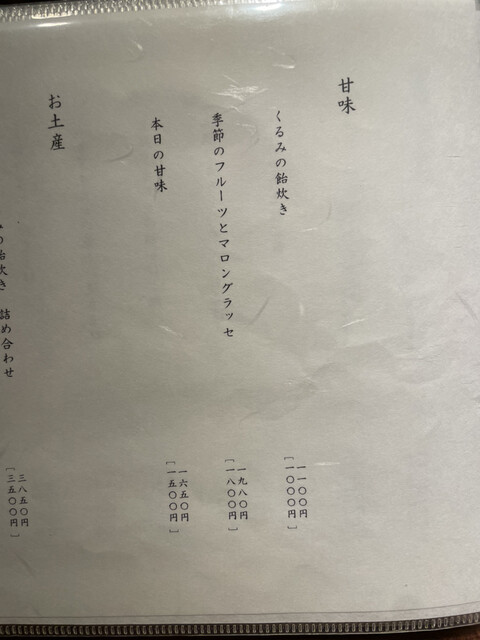 甘味
くるみの飴炊き
一一〇〇円
[一〇〇〇円]
季節のフルーツとマロングラッセ
一九八〇円
[一八〇〇円]
本日の甘味
一六五〇円
[一五〇〇円]
お土産
の飴炊き 詰め合わせ
三八五〇円
[三五〇〇円]